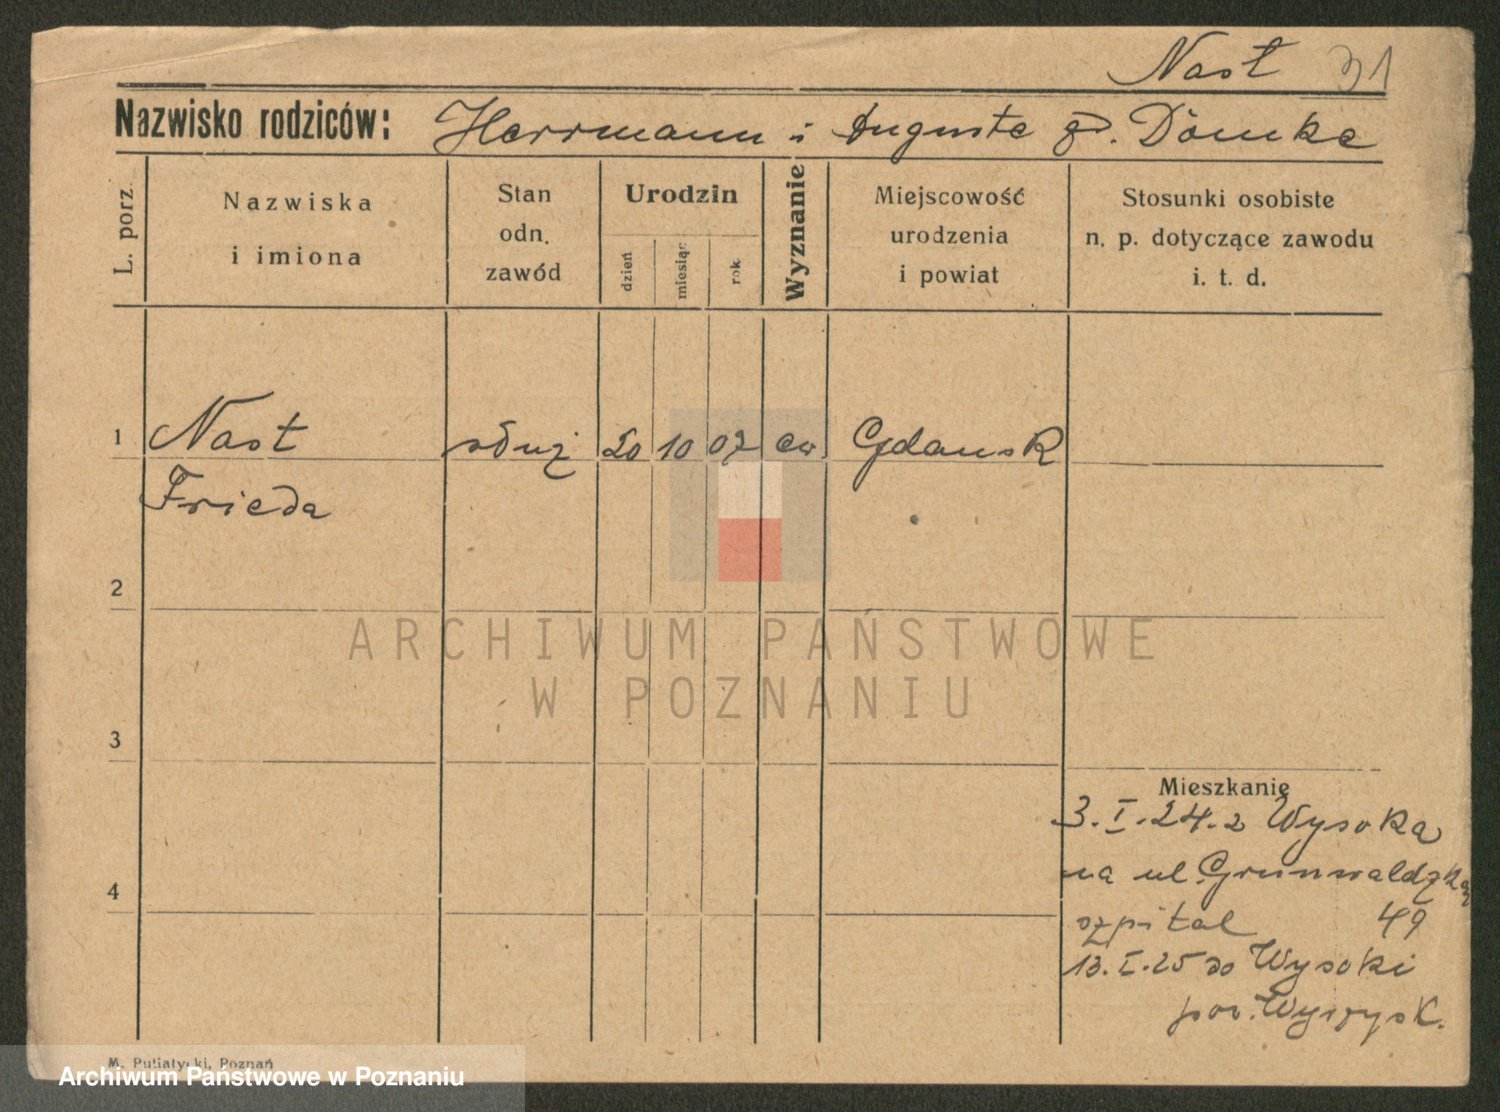 Nast 31
Nazwisko rodziców: Herrmann i Auguste zd. Dömke
L. porz.
Nazwiska
i imiona
Stan
odn.
zawód
Urodzin
dzień
miesiąc
rok
Wyznanie
Miejscowość
urodzenia
i powiat
Stosunki osobiste
n. p. dotyczące zawodu
i. t. d.
1 Nast służ 20 10 07 ew Gdansk
Frieda
2
ARCHIWUM PAŃSTWOWE
W POZNANIU
3
Mieszkanie
3.I.24. z Wysoka
na ul Grunwaldzka
szpital 49
4
13.I.25 do Wysoki
pow. Wyrzysk.
M. Putiatycki, Poznań
Archiwum Państwowe w Poznaniu